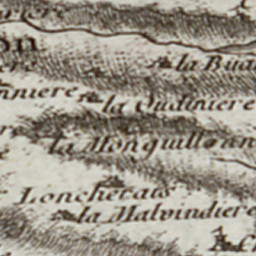 la Bua
nniere
la Oudiniere
la Monguillonn
Lonchetais
la Malvindiere